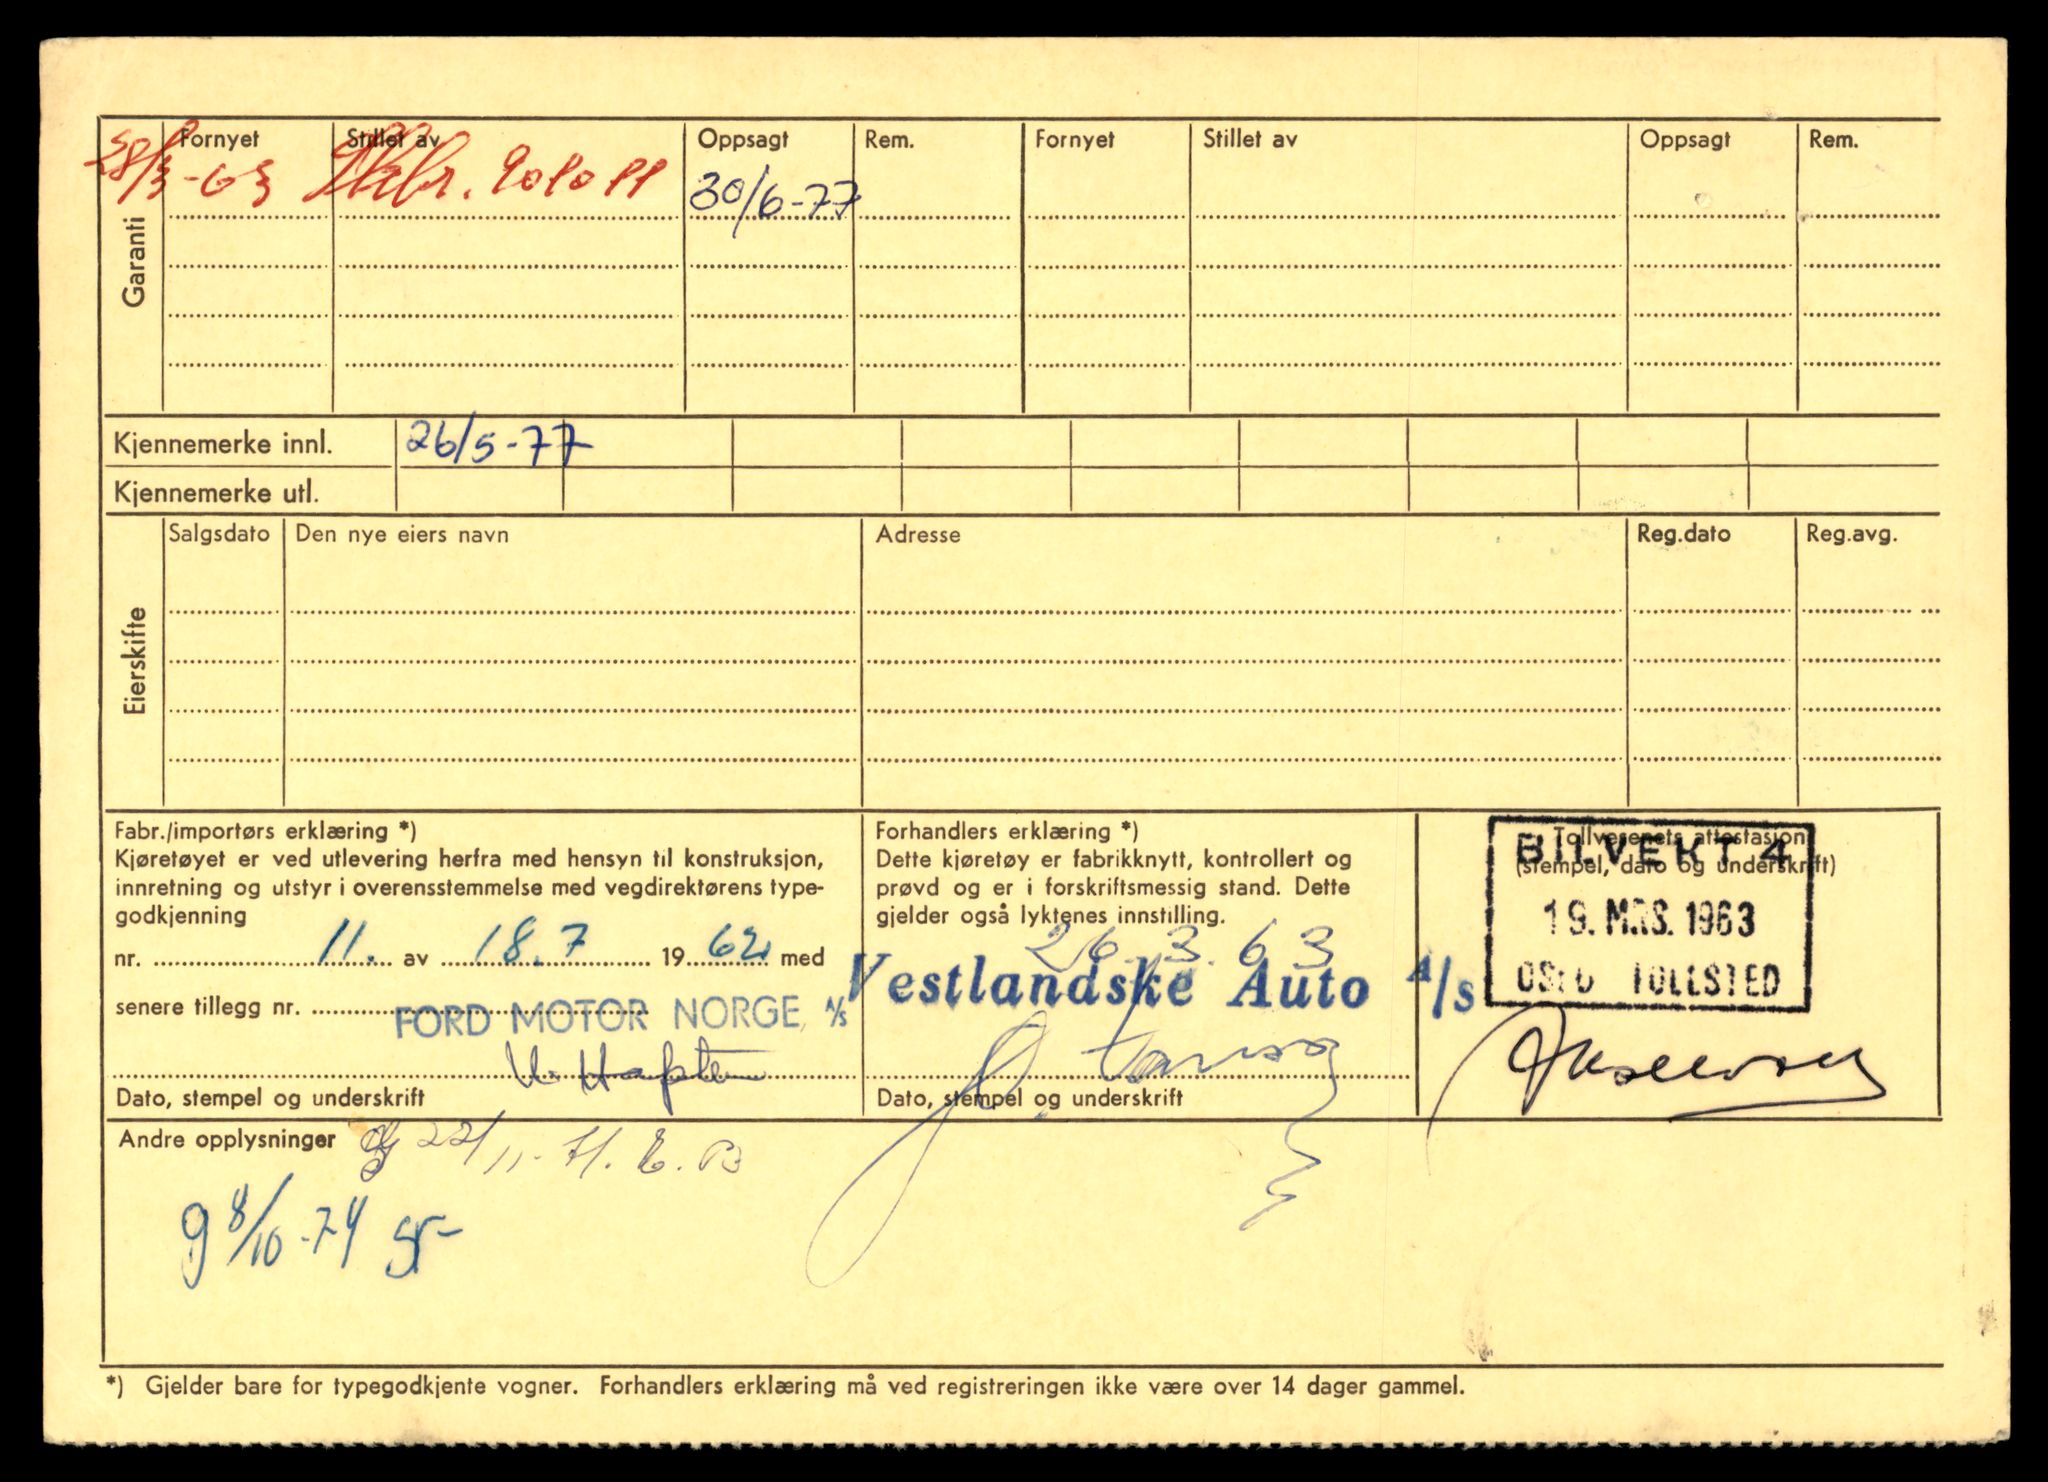 Garanti
Fornyet Stillet av Oppsagt Rem. Fornyet Stillet av Oppsagt Rem.
28/3-63 30/6-77
Kjennemerke innl. 26/5-77
Kjennemerke utl.
Eierskifte
Salgsdato Den nye eiers navn Adresse Reg.dato Reg.avg.
Fabr./importørs erklæring *)
Kjøretøyet er ved utlevering herfra med hensyn til konstruksjon,
innretning og utstyr i overensstemmelse med vegdirektørens type-
godkjenning
nr. 11. av 18.7 1962 med
senere tillegg nr.
FORD MOTOR NORGE, A/S
Dato, stempel og underskrift
Forhandlers erklæring *)
Dette kjøretøy er fabrikknytt, kontrollert og
prøvd og er i forskriftsmessig stand. Dette
gjelder også lyktenes innstilling.
26.3.63
Vestlandske Auto A/S
Dato, stempel og underskrift
Tollvesenets attestasjon
(stempel, dato og underskrift)
BILVEKT 4
19. MRS. 1963
OSLO TOLLSTED
Andre opplysninger
22/11-71. E.B
g 8/10-74
*) Gjelder bare for typegodkjente vogner. Forhandlers erklæring må ved registreringen ikke være over 14 dager gammel.